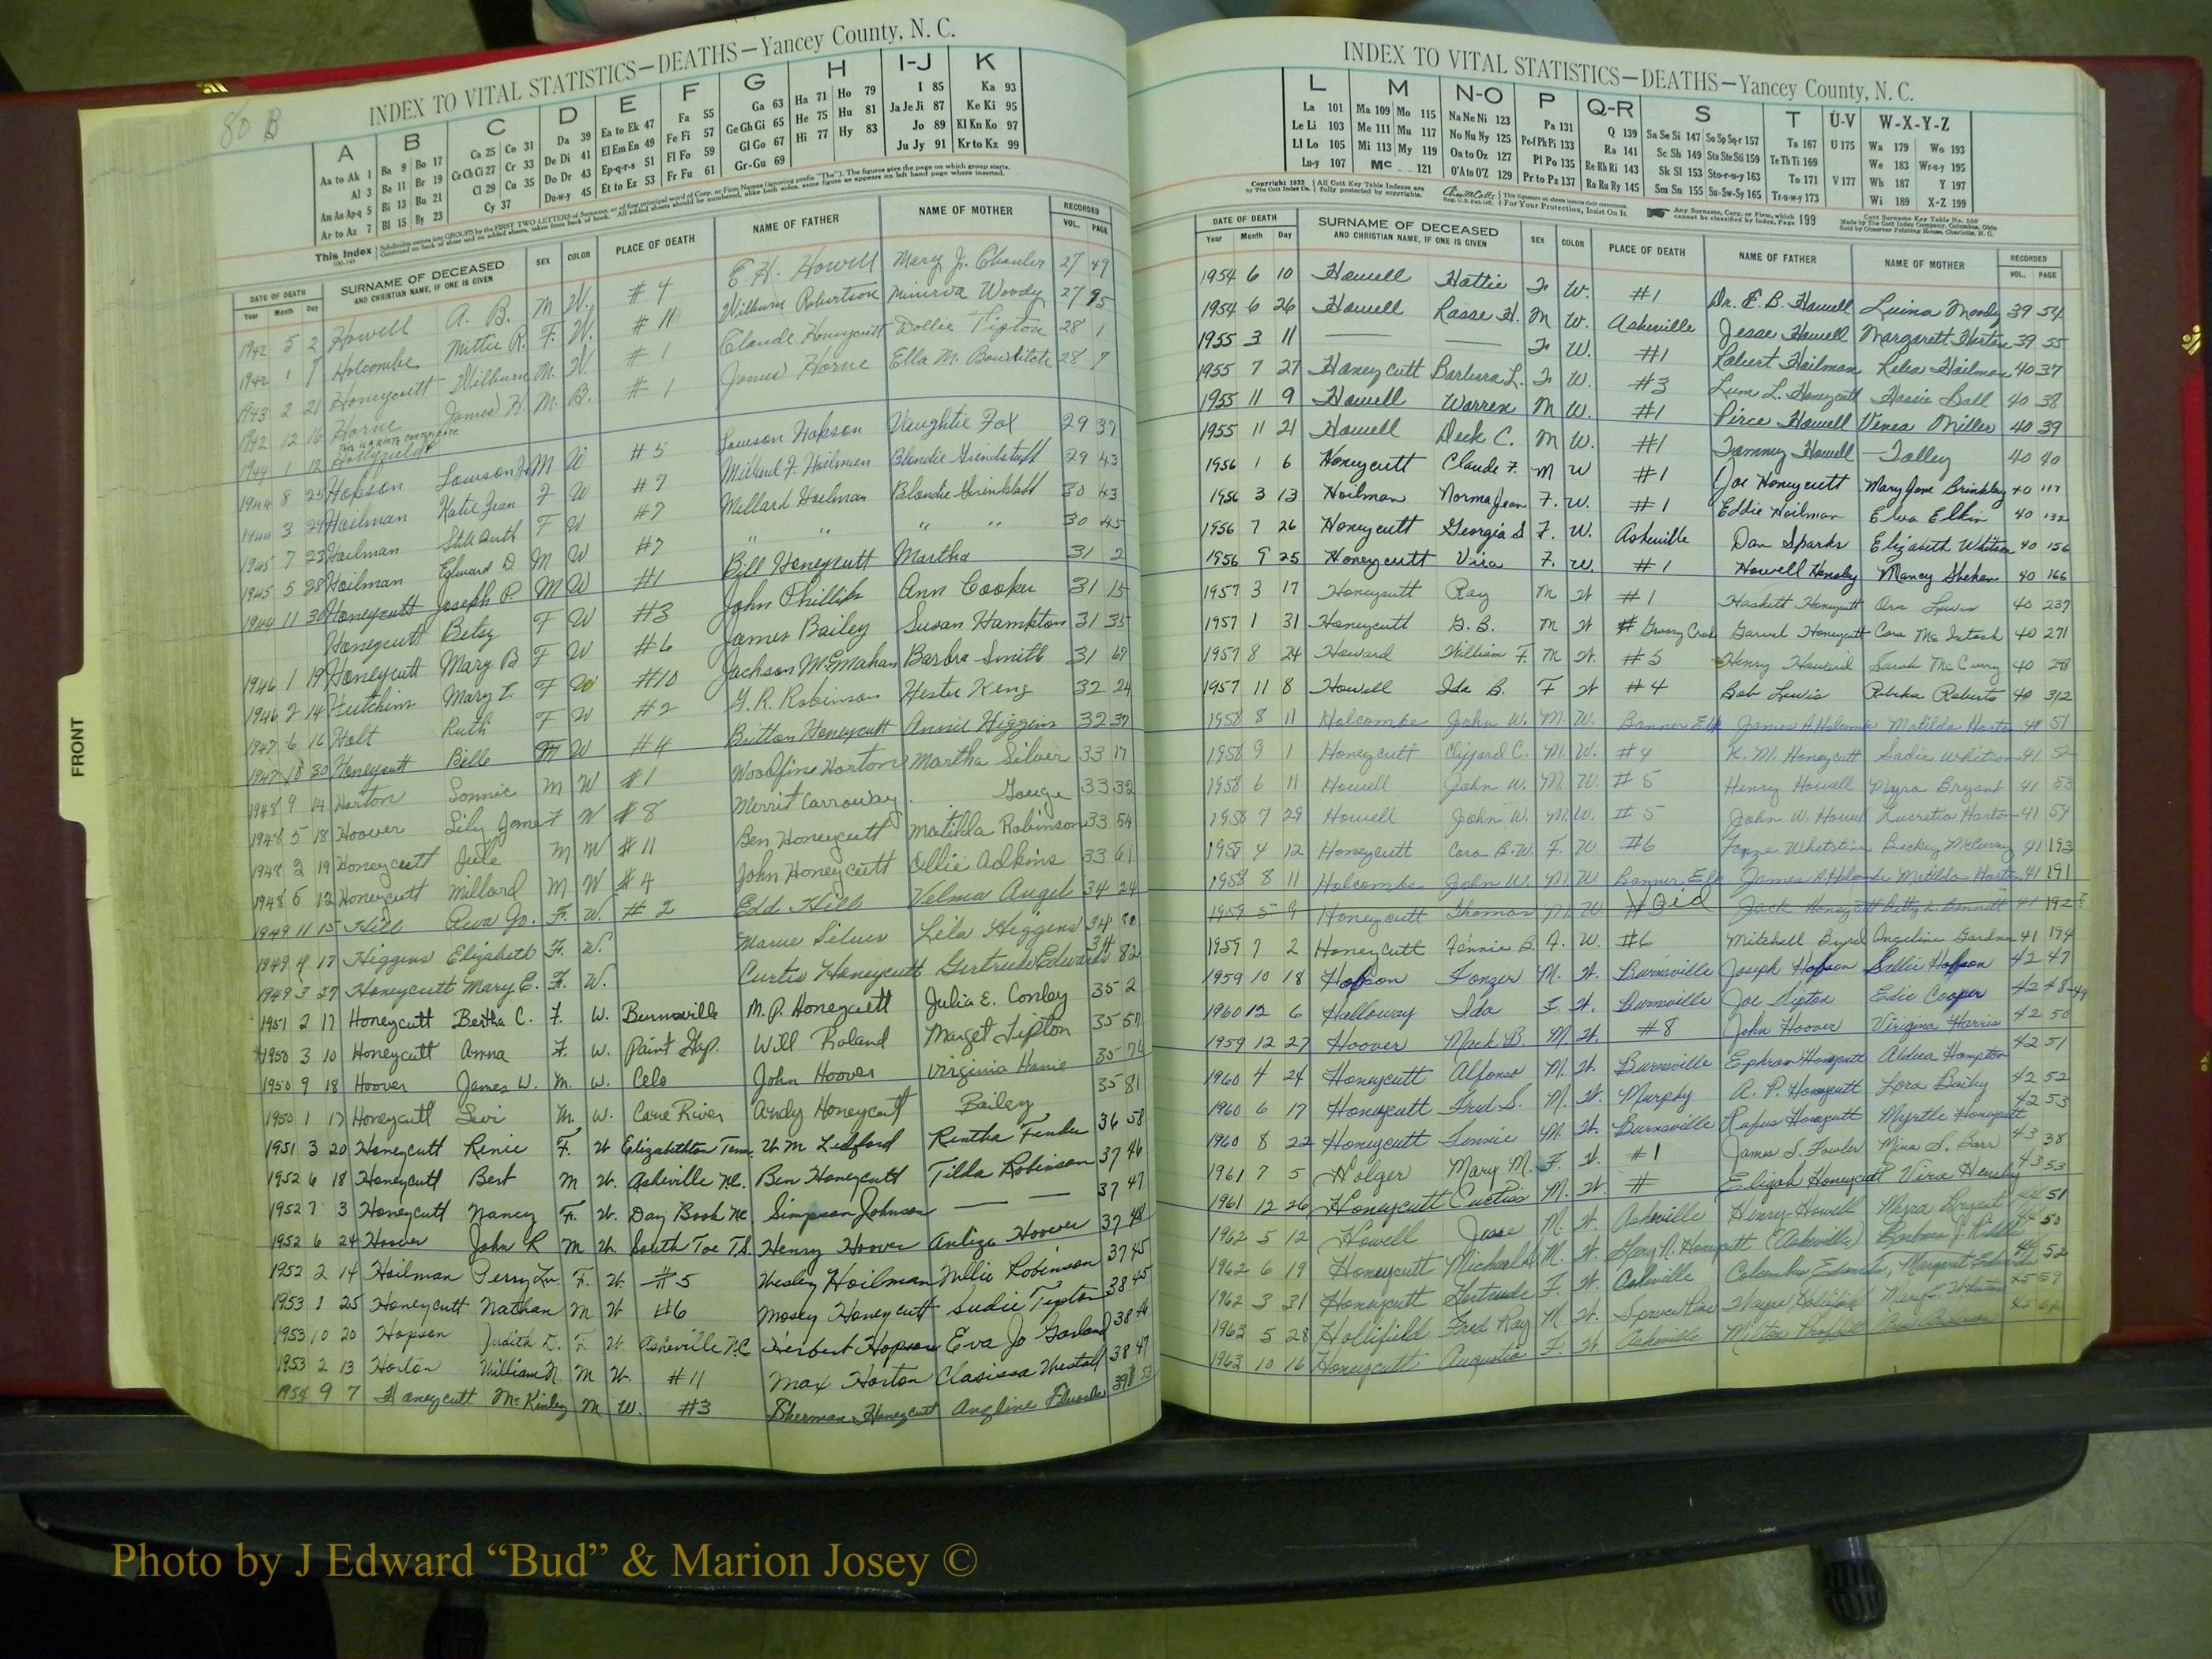 80 B
INDEX TO VITAL STATISTICS—DEATHS—Yancey County, N. C.
A B C D E F G H I-J K
Aa to Ak 1 Ba 9 Bo 17 Ca 25 Co 31 Da 39 Ea to Ek 47 Fa 55 Ga 63 Ha 71 Ho 79 I 85 Ka 93
Al 3 Be 11 Br 19 Ce Ch Ci 27 Cr 33 De Di 41 El Em En 49 Fe Fi 57 Ge Gh Gi 65 He 75 Hu 81 Ja Je Ji 87 Ke Ki 95
Am An Ap-q 5 Bi 13 Bu 21 Cl 29 Cu 35 Do Dr 43 Ep-q-r-s 51 Fl Fo 59 Gl Go 67 Hi 77 Hy 83 Jo 89 Kl Kn Ko 97
Ar to Az 7 Bl 15 By 23 Cy 37 Du-w-y 45 Et to Ez 53 Fr Fu 61 Gr-Gu 69 Ju Jy 91 Kr to Kz 99
This Index
DATE OF DEATH SURNAME OF DECEASED SEX COLOR PLACE OF DEATH NAME OF FATHER NAME OF MOTHER RECORDED
Year Month Day AND CHRISTIAN NAME, IF ONE IS GIVEN VOL. PAGE
1942 5 2 Howell A. B. M W. #4 E. H. Howell Mary J. 27 49
1942 1 Holcombe Mittie R. F. W. #11 Wilburn Robertson Minerva Woody 27 95
1943 2 21 Honeycutt Wilburn M. W. #1 Claude Honeycutt Dollie Tipton 28 1
1942 12 16 Horne James H. M. B. #1 James Horne Ella M. 28 9
1944 1 12 Hollyfield
1944 8 25 Hopson Lawson Jr M W #5 Lawson Hopson Vaughtie Fox 29 37
1944 3 29 Hoilman Katie Jean F W #7 Millard F. Hoilman Blondie Grindstaff 29 43
1945 7 23 Hoilman F W #7 Millard Hoilman Blondie 30 43
1945 5 28 Hoilman Edward D M W #7 " " " " 30 45
1944 11 30 Honeycutt Joseph P M W #1 Bill Honeycutt Martha 31 2
Honeycutt Betsy F W #3 John Phillips Ann Cooper 31 15
1946 1 19 Honeycutt Mary B F W #6 James Bailey Susan Hampton 31 35
1946 2 14 Hutchins Mary E. F W #10 Jackson McMahan Barbra Smith 31 69
1947 6 16 Holt Ruth F W #2 G. R. Robinson Hester King 32 24
1947 10 30 Honeycutt Bille W #4 Britton Honeycutt Annie Higgins 32 37
1948 9 14 Horton Lonnie M W #1 Woodfin Horton Martha Silver 33 17
1948 5 18 Hoover Lily Jane F W #8 Merrit Carroway Gouge 33 32
1948 2 19 Honeycutt Jule M W #11 Ben Honeycutt Matilda Robinson 33 54
1948 5 12 Honeycutt Millard M W #4 John Honeycutt Ollie Adkins 33 61
1949 11 15 Hill Jo. F. W. #2 Edd Hill Velma Angel 34 24
1949 4 17 Higgins Elizabeth F. W. Silver Lila Higgins 34 80
1949 3 27 Honeycutt Mary E. F. W. Curtis Honeycutt Gertrude Edwards 34 82
1951 2 17 Honeycutt Bertha C. F. W. Burnsville M. P. Honeycutt Julia E. Conley 35 2
1950 3 10 Honeycutt Anna F. W. Paint Gap. Will Roland Marget Tipton 35 57
1950 9 18 Hoover James W. M. W. Celo John Hoover Virginia 35 76
1950 1 17 Honeycutt Levi M. W. Cane River Andy Honeycutt Bailey 35 81
1951 3 20 Honeycutt Renie F. W Elizabethton Tenn. W. M Ledford Rintha Fender 36 58
1952 6 18 Honeycutt Bert M W. Asheville NC. Ben Honeycutt Tilda Robinson 37 46
1952 7 3 Honeycutt Nancy F. W. Day Book NC Simpson Johnson — — 37 47
1952 6 24 Hoover John R M W. South Toe T.S. Henry Hoover Hoover 37 48
1952 2 14 Hoilman Perry Lu. F. W #5 Wesley Hoilman Nellie Robinson 37 45
1953 1 25 Honeycutt Nathan M W #6 Mosey Honeycutt Sudie Tipton 38 45
1953 10 20 Hopson Judith D. F. W Asheville N.C Herbert Hopson Eva Jo Garland 38 46
1953 2 13 Horton William N. M W. #11 Max Horton Clarissa Westall 38 47
1954 9 7 Honeycutt McKinley M W. #3 Sherman Honeycutt Angline Edwards 39
INDEX TO VITAL STATISTICS—DEATHS—Yancey County, N. C.
L M N-O P Q-R S T U-V W-X-Y-Z
La 101 Ma 109 Mo 115 Na Ne Ni 123 Pa 131 Q 139 Sa Se Si 147 So Sp Sq-r 157 Ta 167 U 175 Wa 179 Wo 193
Le Li 103 Me 111 Mu 117 No Nu Ny 125 Pe-f Ph Pi 133 Ra 141 Sc Sh 149 Sta Ste Sti 159 Te Th Ti 169 We 183 Wr-u-y 195
Ll Lo 105 Mi 113 My 119 Oa to Oz 127 Pl Po 135 Re Rh Ri 143 Sk Sl 153 Sto-r-u-y 163 To 171 V 177 Wh 187 Y 197
Lu-y 107 Mc 121 O'A to O'Z 129 Pr to Pz 137 Ro Ru Ry 145 Sm Sn 155 Su-Sw-Sy 165 Tr-u-w-y 173 Wi 189 X-Z 199
Copyright 1932 by The Cott Index Co. All Cott Key Table Indexes are fully protected by copyrights. For Your Protection, Insist On It. Any Surname, Corp. or Firm, which cannot be classified by Index, Page 199
DATE OF DEATH SURNAME OF DECEASED SEX COLOR PLACE OF DEATH NAME OF FATHER NAME OF MOTHER RECORDED
Year Month Day AND CHRISTIAN NAME, IF ONE IS GIVEN VOL. PAGE
1954 6 10 Howell Hattie F W. #1 Dr. E. B. Howell Moody 39 54
1954 6 26 Howell Rasse H. M W. Asheville Jesse Howell Margarett Horton 39 55
1955 3 11 — — F W. #1 Robert Hoilman Relea Hoilman 40 37
1955 7 27 Honeycutt Barbara L. F W. #3 Lum L. Honeycutt Hassie Ball 40 38
1955 11 9 Howell Warren M W. #1 Pirce Howell Venea Miller 40 39
1955 11 21 Howell Deck C. M W. #1 Tommy Howell — Talley 40 40
1956 1 6 Honeycutt Claude F. M W #1 Joe Honeycutt Mary Jane Brinkley 40 117
1956 3 13 Hoilman Norma Jean F. W. #1 Eddie Hoilman Elva Elkin 40 132
1956 7 26 Honeycutt Georgia S F. W. Asheville Dan Sparks Elizabeth Whitson 40 156
1956 9 25 Honeycutt Vira F. W. #1 Howell Hensley Mancy Shehan 40 166
1957 3 17 Honeycutt Ray M W #1 Haskett Honeycutt Ora Lewis 40 237
1957 1 31 Honeycutt G. B. M W # Grassy Creek Garvel Honeycutt Cora McIntosh 40 271
1957 8 24 Howard William F. M W. #5 Henry Howard Sarah McCurry 40 298
1957 11 8 Howell Ida B. F W #4 Bob Lewis Rebeka Roberts 40 312
1958 8 11 Holcombe John W. M. W. Banner Elk James A Holcombe Matilda Horton 41 51
1958 9 1 Honeycutt Clifford C. M. W. #4 K. M. Honeycutt Sadie Whitson 41 52
1958 6 11 Howell John W. M. W. #5 Henry Howell Myra Bryant 41 53
1958 7 29 Howell John W. M. W. #5 John W. Howell Lucretia Horton 41 54
1958 4 12 Honeycutt Cora B. W. F. W. #6 Whetstine Becky McCurry 41 153
1958 8 11 Holcombe John W. M. W Banner Elk James A Holcombe Matilda Horton 41 191
1959 5 9 Honeycutt Thomas M. W. Jack Honeycutt Betty L Bennett 41 192
1959 7 2 Honeycutt Fennie B. F. W. #6 Mitchell Byrd Angeline Gardner 41 194
1959 10 18 Hopson Fonzer M. W. Burnsville Joseph Hopson Sallie Hopson 42 47
1960 12 6 Holloway Ida F. W. Burnsville Joe Tipton Edie Cooper 42 48-49
1959 12 27 Hoover Mack B. M. W. #8 John Hoover Virigina Harris 42 50
1960 4 24 Honeycutt Alfonso M. W. Burnsville Ephram Honeycutt Hampton 42 51
1960 6 17 Honeycutt Fred S. M. W. Murphy A. P. Honeycutt Lora Bailey 42 52
1960 8 22 Honeycutt M. W. Burnsville Rufus Honeycutt Myrtle Honeycutt 42 53
1961 7 5 Holger Mary M. F. W. #1 James S. Fowler Mina S. 43 38
1961 12 26 Honeycutt Curtiss M. W. # Elizah Honeycutt Vira Hensley 43 53
1962 5 12 Howell Jesse M. W. Asheville Henry Howell Myra Bryant 44 51
1962 6 19 Honeycutt Michael M. W. Gary N. Honeycutt (Asheville) Barbara J. Riddle 44 50
1962 3 31 Honeycutt Gertrude F. W. Asheville Columbus Edwards, Margaret Edwards 44 52
1963 5 28 Hollifield Fred Ray M W. Spruce Pine Wayne Hollifield 45 59
1963 10 16 Honeycutt Augusta F. W. Asheville Milton Proffitt
FRONT
Photo by J Edward “Bud” & Marion Josey ©